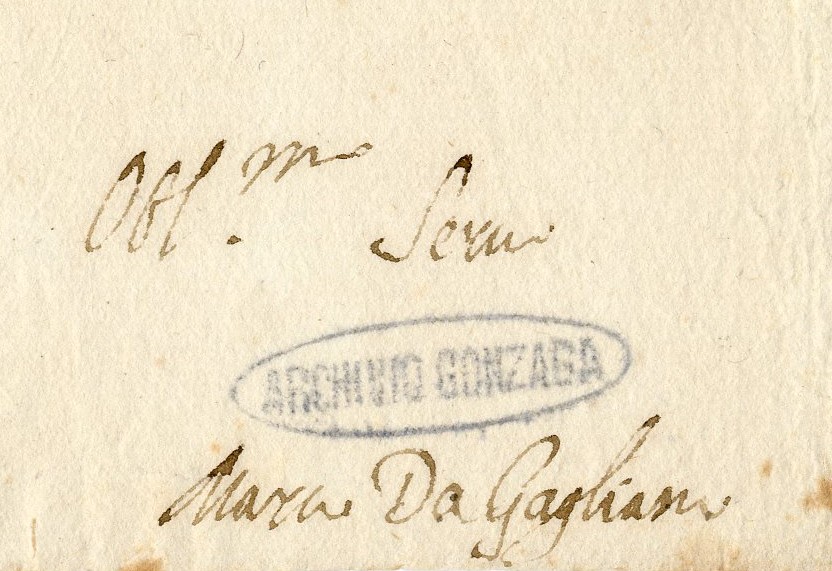 Obl.mo Seru.
ARCHIVIO GONZAGA
Marco Da Gagliano